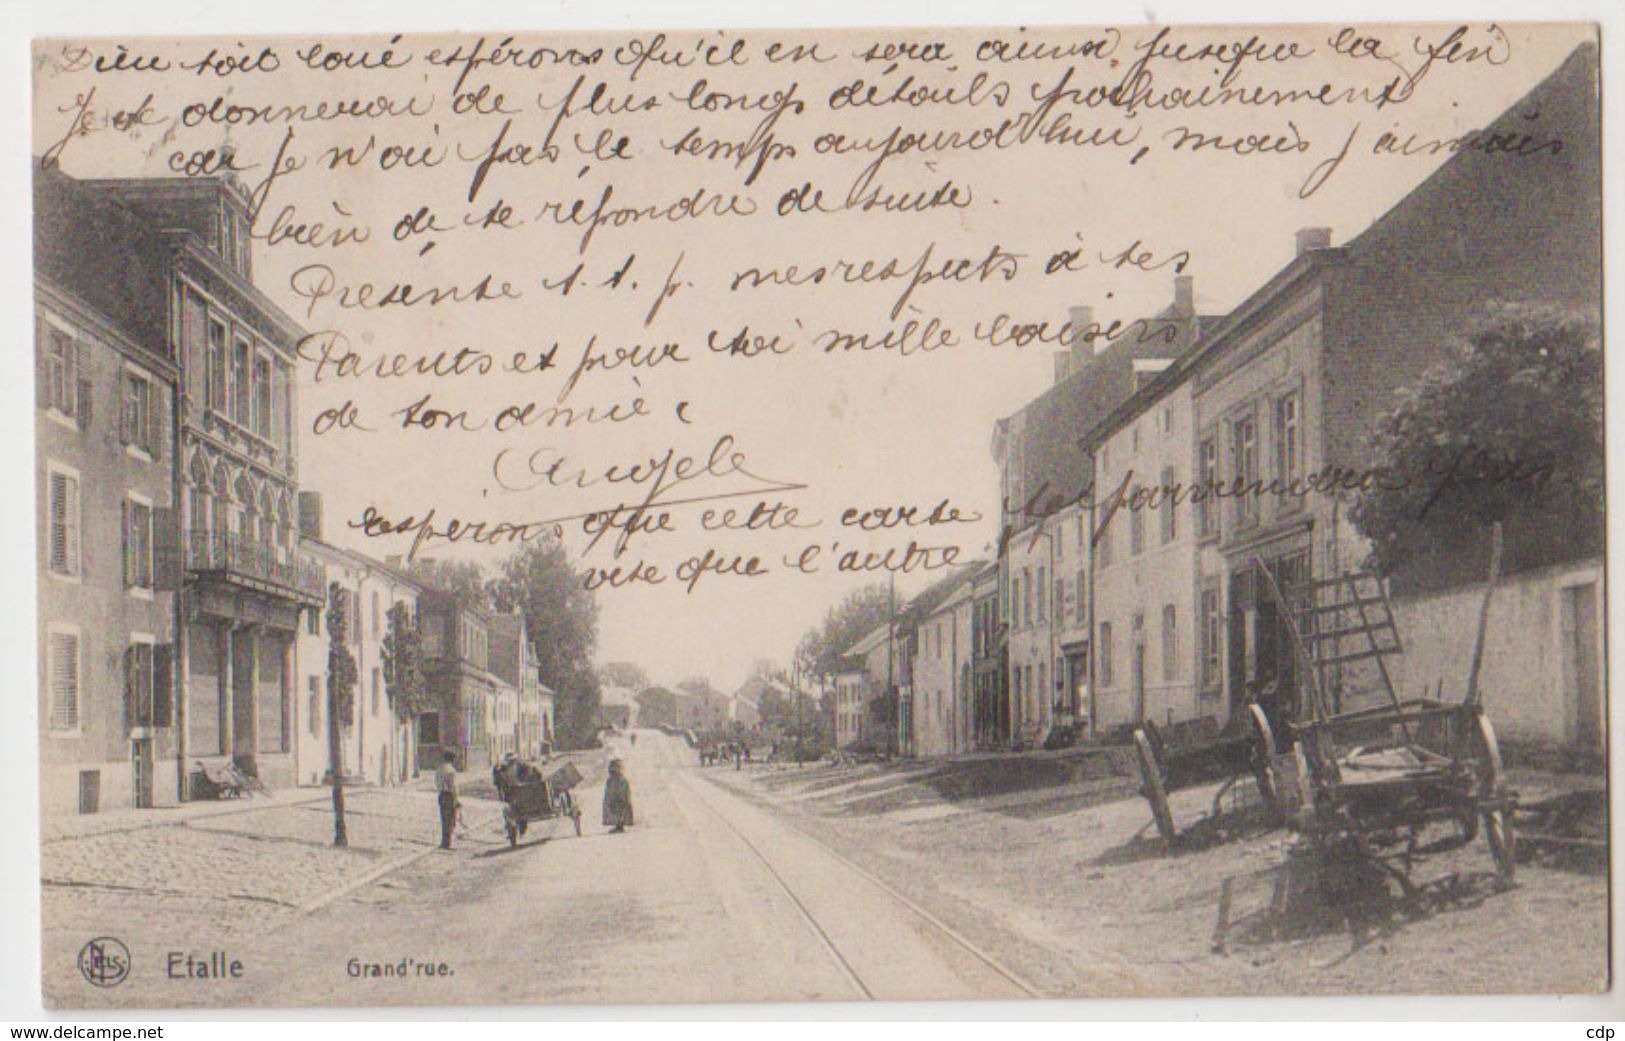 Dieu soit loué espérons qu'il en sera ainsi jusque la fin
Je te donnerai de plus longs détails prochainement
car je n'ai pas le temps aujourd'hui, mais j'aimais
bien de te répondre de suite.
Présente s.t.p. mes respects à tes
Parents et pour toi mille baisers
de ton amie,
Angèle
espérons que cette carte te parviendra plus
vite que l'autre
NELS
Etalle Grand'rue.
www.delcampe.net
cdp